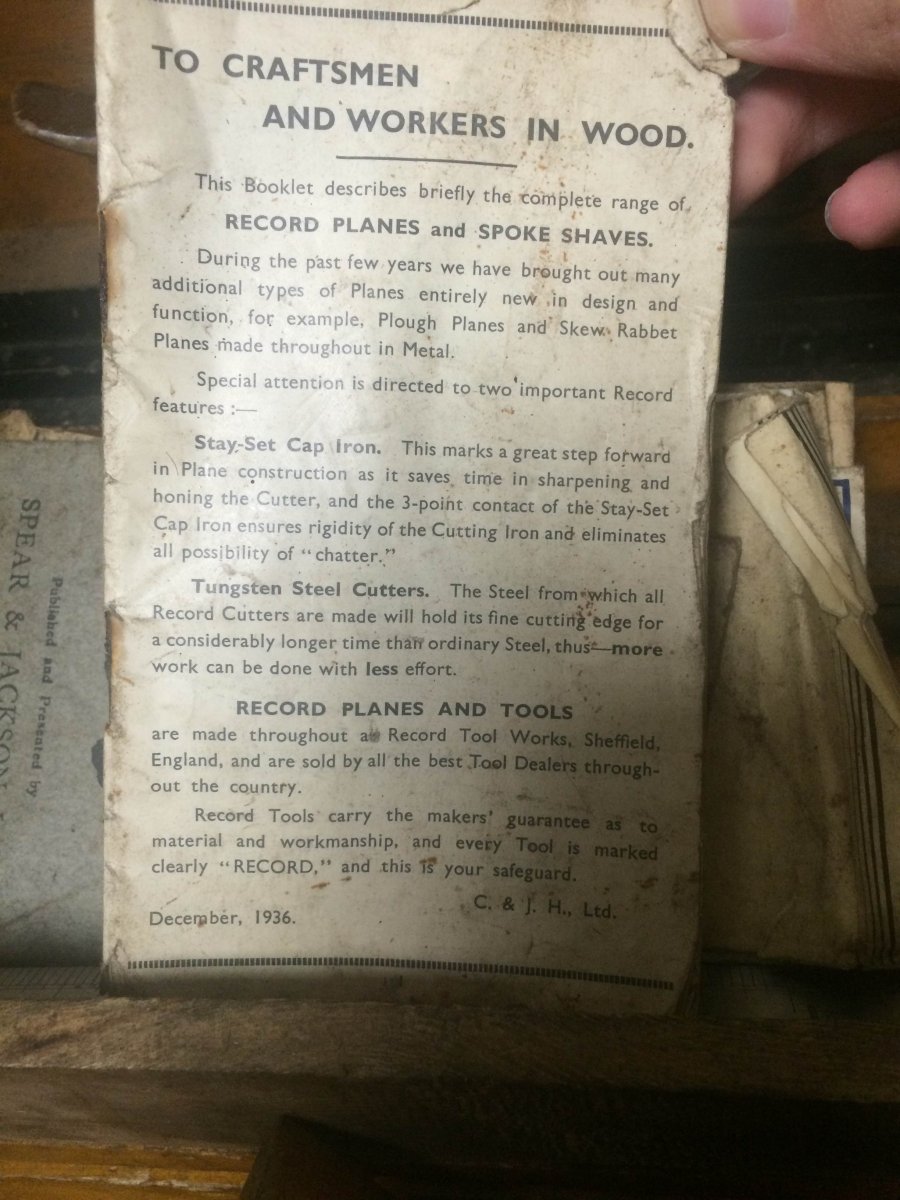 TO CRAFTSMEN
AND WORKERS IN WOOD.
This Booklet describes briefly the complete range of
RECORD PLANES and SPOKE SHAVES.
During the past few years we have brought out many
additional types of Planes entirely new in design and
function, for example, Plough Planes and Skew Rabbet
Planes made throughout in Metal.
Special attention is directed to two important Record
features :—
Stay-Set Cap Iron. This marks a great step forward
in Plane construction as it saves time in sharpening and
honing the Cutter, and the 3-point contact of the Stay-Set
Cap Iron ensures rigidity of the Cutting Iron and eliminates
all possibility of “chatter.”
Tungsten Steel Cutters. The Steel from which all
Record Cutters are made will hold its fine cutting edge for
a considerably longer time than ordinary Steel, thus—more
work can be done with less effort.
RECORD PLANES AND TOOLS
are made throughout at Record Tool Works, Sheffield,
England, and are sold by all the best Tool Dealers through-
out the country.
Record Tools carry the makers’ guarantee as to
material and workmanship, and every Tool is marked
clearly “RECORD,” and this is your safeguard.
C. & J. H., Ltd.
December, 1936.
Published and Presented by
SPEAR & JACKSON